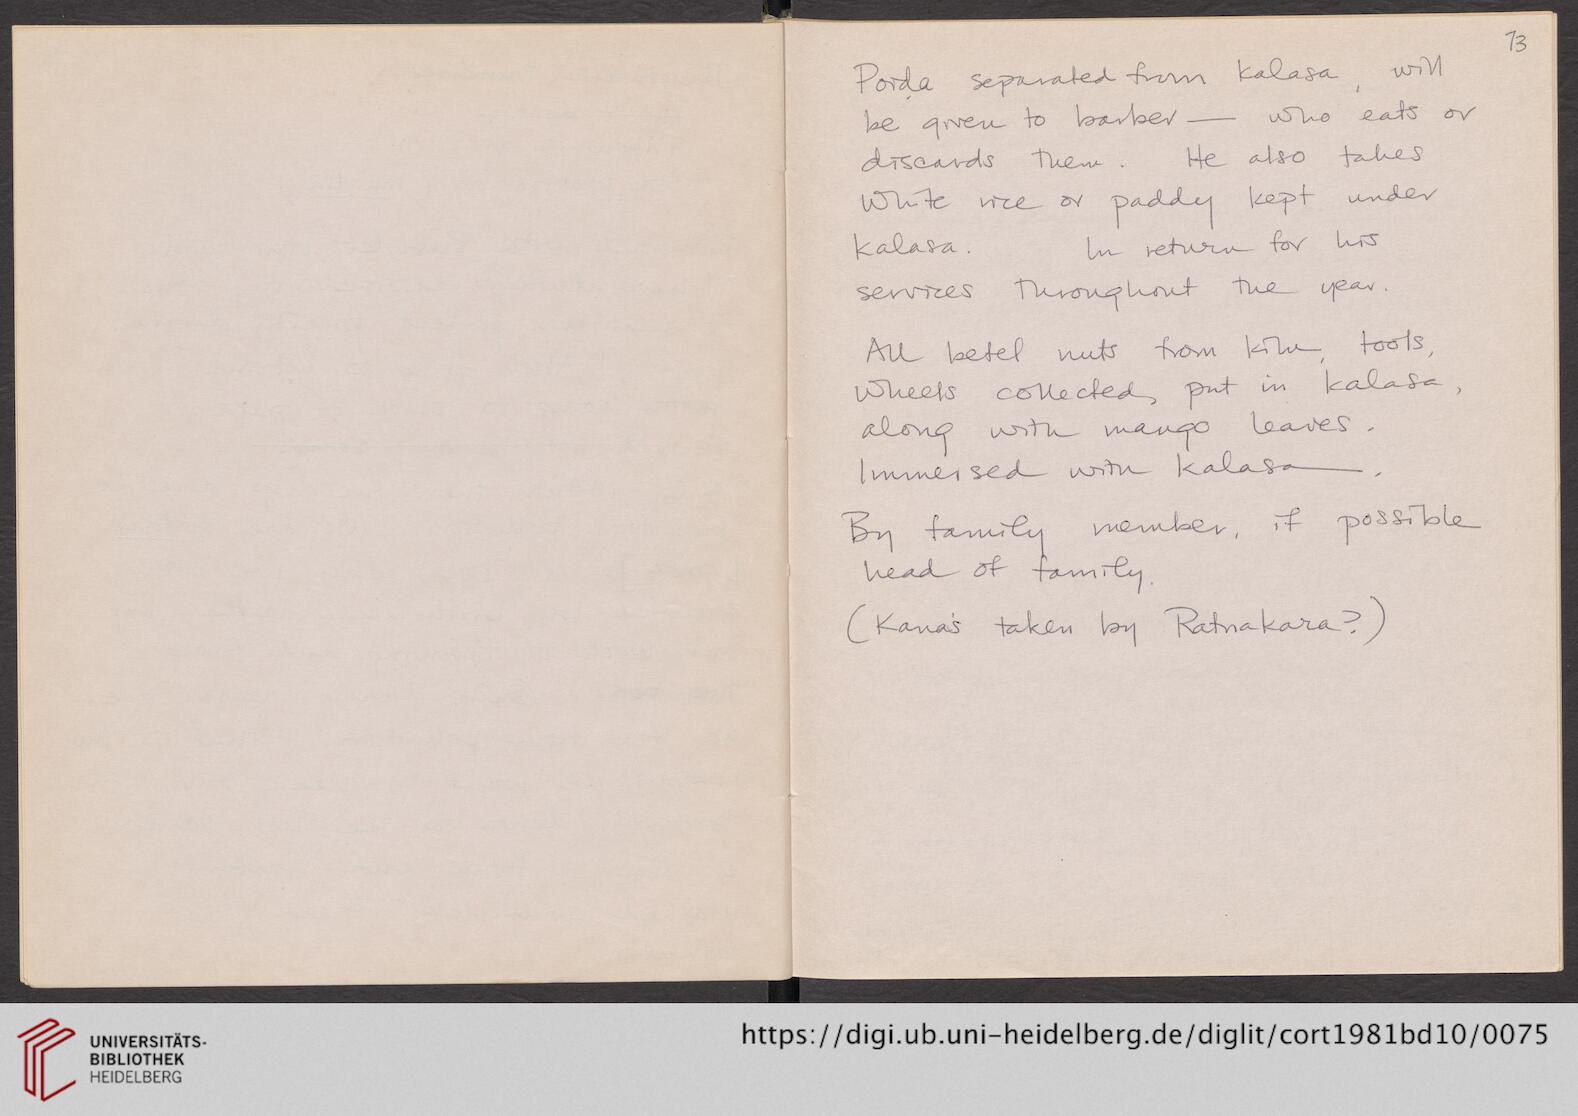 73
Poḍa separated from kalasa, will
be given to barber — who eats or
discards them. He also takes
white rice or paddy kept under
kalasa. In return for his
services throughout the year.
All betel nuts from kiln, tools,
wheels collected, put in kalasa,
along with mango leaves.
Immersed with kalasa.
By family member, if possible
head of family.
(Kana's taken by Ratnakara?)
UNIVERSITÄTS-
BIBLIOTHEK
HEIDELBERG
https://digi.ub.uni-heidelberg.de/diglit/cort1981bd10/0075